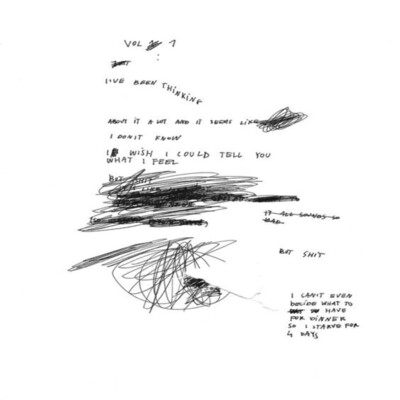 VOL 1
I'VE BEEN THINKING
ABOUT IT A LOT AND IT SEEMS LIKE
I DON'T KNOW
I WISH I COULD TELL YOU
WHAT I FEEL
BUT SHIT
IT ALL SOUNDS SO
BAD
BUT SHIT
I CAN'T EVEN
DECIDE WHAT TO
HAVE
FOR DINNER
SO I STARVE FOR
4 DAYS